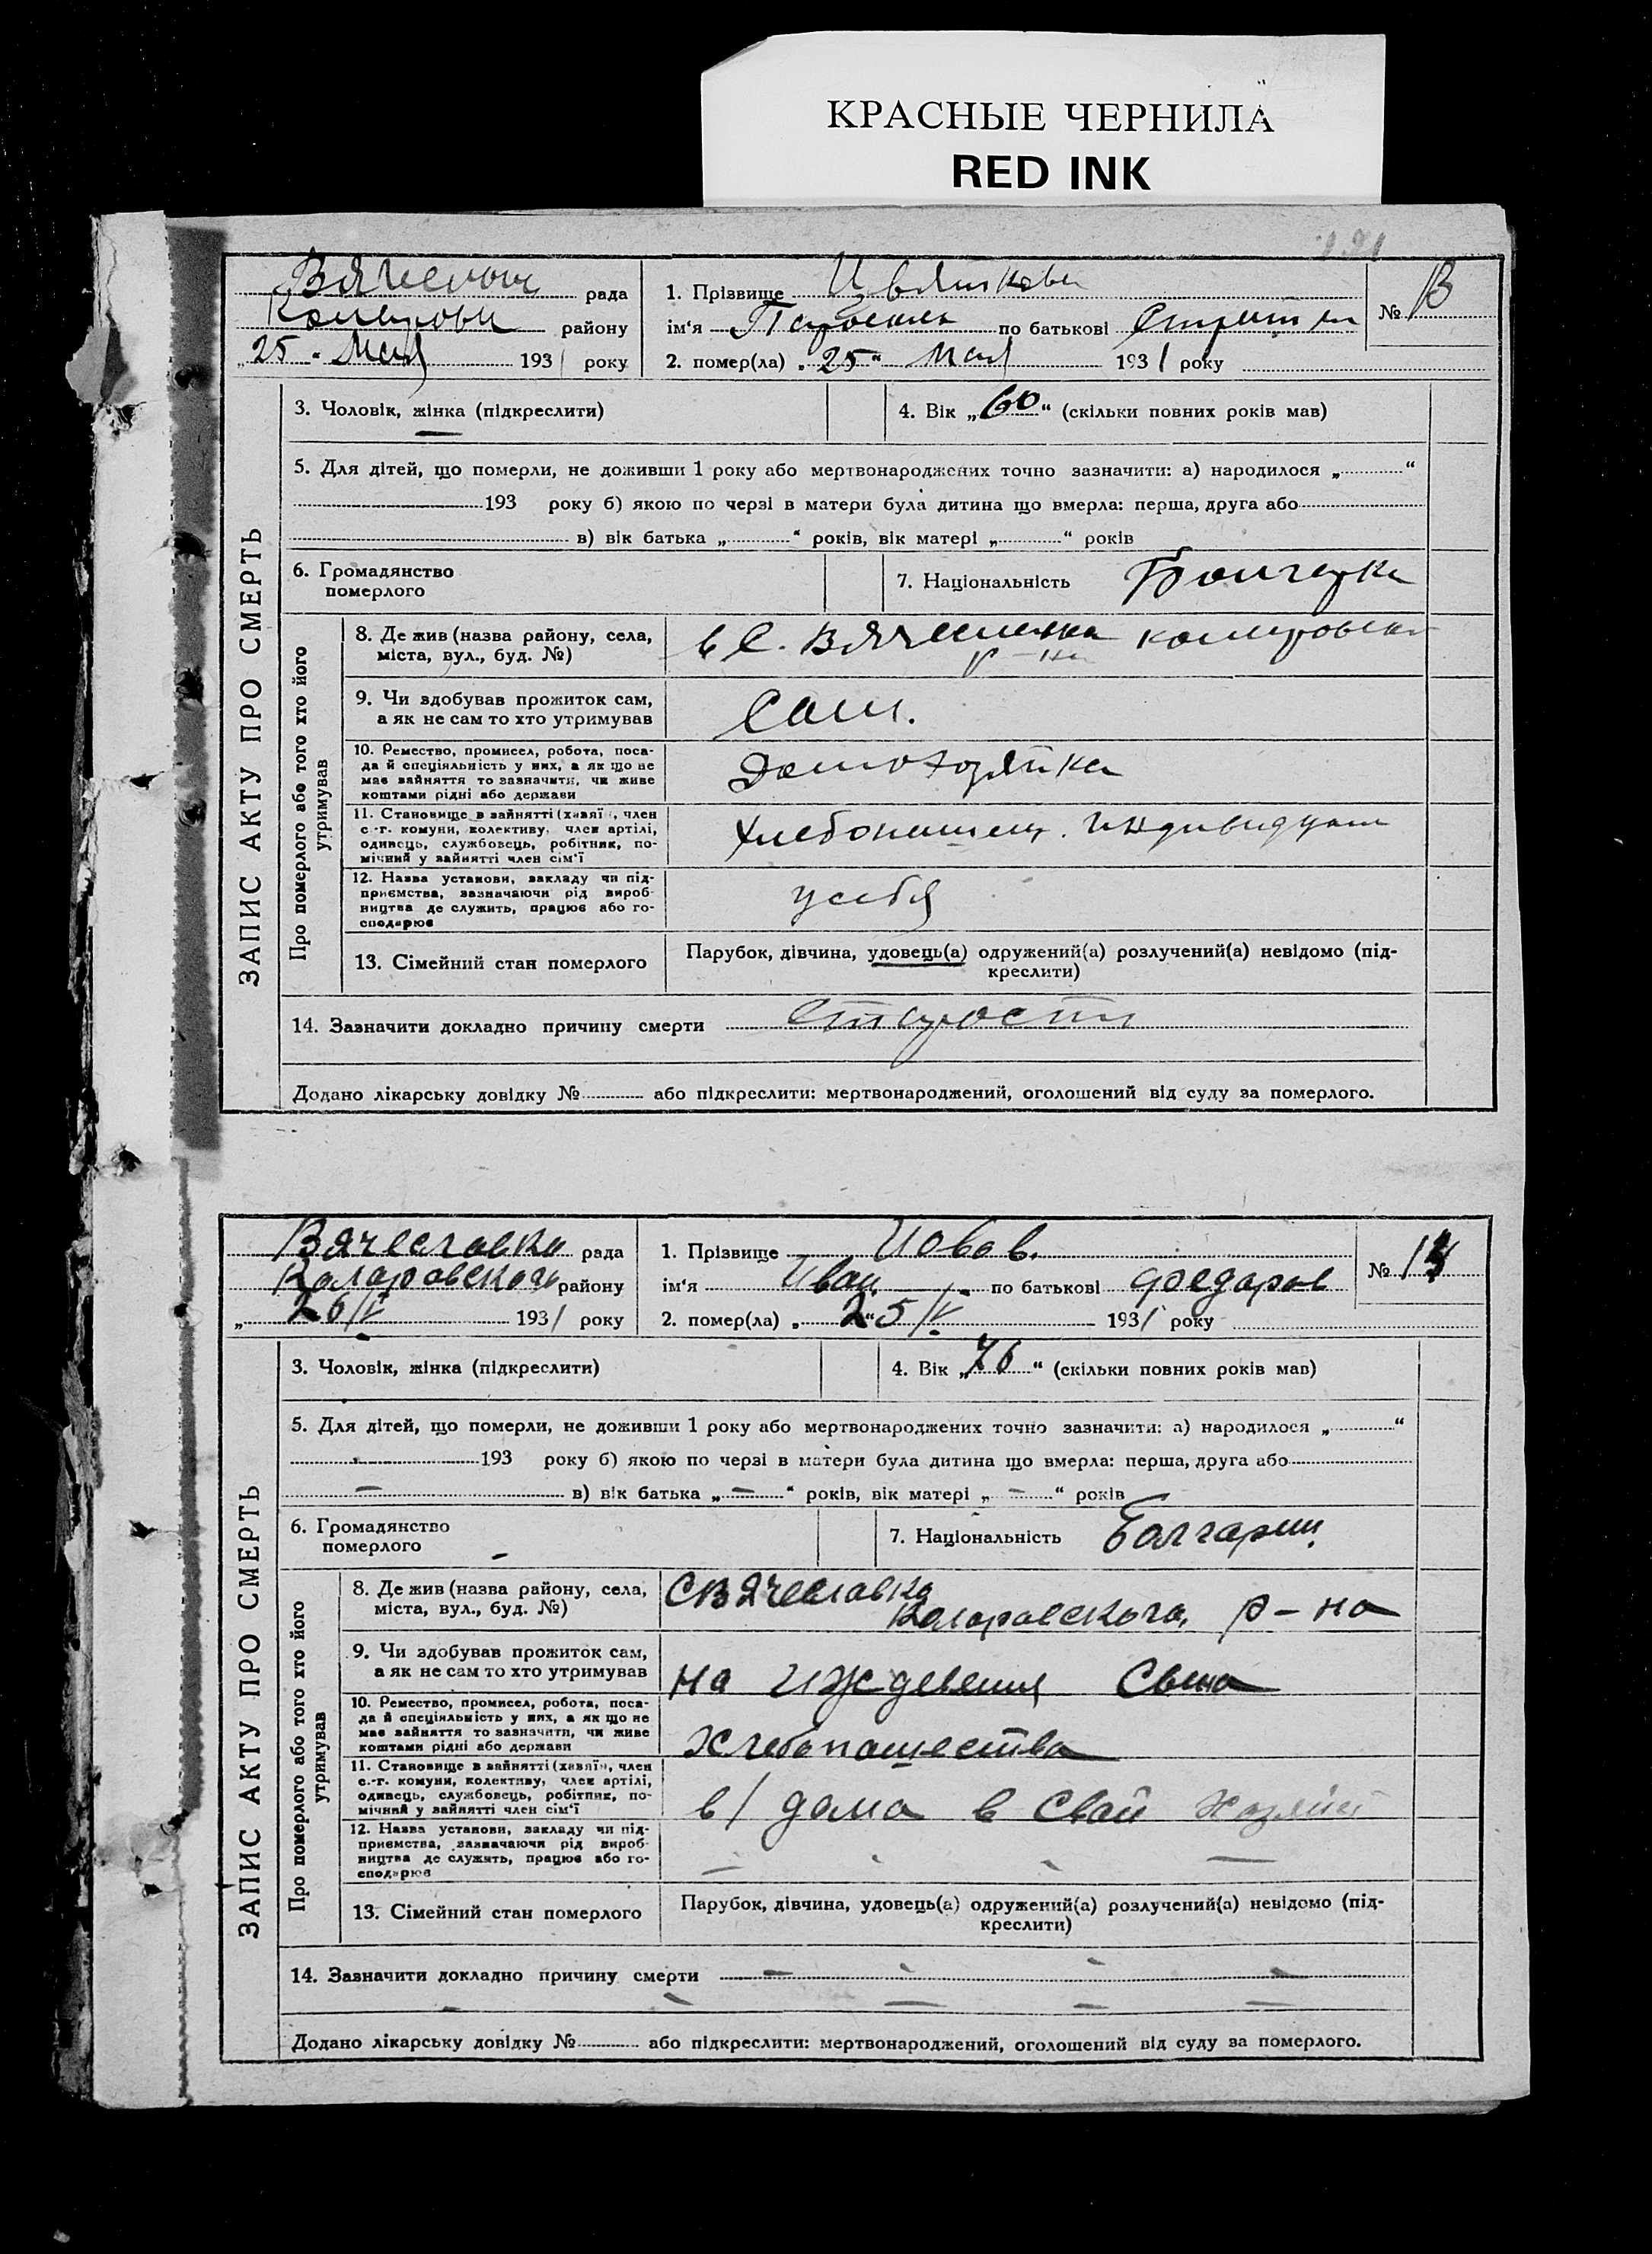 КРАСНЫЕ ЧЕРНИЛА
RED INK
рада
району
25 Мая 1931 року
1. Прізвище
ім'я по батькові
2. помер(ла) „25“ Мая 1931 року
№ 13
ЗАПИС АКТУ ПРО СМЕРТЬ
3. Чоловік, жінка (підкреслити)
4. Вік „60“ (скільки повних років мав)
5. Для дітей, що померли, не доживши 1 року або мертвонароджених точно зазначити: а) народилося „ “
193 року б) якою по черзі в матери була дитина що вмерла: перша, друга або
в) вік батька „ “ років, вік матері „ “ років
6. Громадянство
померлого
7. Національність Болгарка
Про померлого або того хто його
утримував
8. Де жив (назва району, села,
міста, вул., буд. №)
в с. Вячеславка
р-на
9. Чи здобував прожиток сам,
а як не сам то хто утримував
Сам.
10. Ремество, промисел, робота, поса-
да й спеціяльність у них, а як що не
має зайняття то зазначити, чи живе
коштами рідні або держави
Домохозяйка
11. Становище в зайнятті (хазяї , член
с.-г. комуни, колективу, член артілі,
одинець, службовець, робітник, по-
мічний у зайнятті член сім'ї
Хлебопашец. индивидуал
12. Назва установи, закладу чи під-
приємства, зазначаючи рід вироб-
ництва де служить, працює або го-
сподарює
у себя
13. Сімейний стан померлого
Парубок, дівчина, удовець(а) одружений(а) розлучений(а) невідомо (під-
креслити)
14. Зазначити докладно причину смерти старости
Додано лікарську довідку № або підкреслити: мертвонароджений, оголошений від суду за померлого.
Вячеславка рада
Коларовского району
„ 26/V 1931 року
1. Прізвище Иовов.
ім'я Иван по батькові Федоров
2. помер(ла) „25/V 1931 року
№
ЗАПИС АКТУ ПРО СМЕРТЬ
3. Чоловік, жінка (підкреслити)
4. Вік „76“ (скільки повних років мав)
5. Для дітей, що померли, не доживши 1 року або мертвонароджених точно зазначити: а) народилося „ “
193 року б) якою по черзі в матери була дитина що вмерла: перша, друга або
— в) вік батька „ — “ років, вік матері „ — “ років
6. Громадянство
померлого —
7. Національність Болгарин.
Про померлого або того хто його
утримував
8. Де жив (назва району, села,
міста, вул., буд. №)
С Вячеславка
Коларовского, р-на
9. Чи здобував прожиток сам,
а як не сам то хто утримував
на иждевения Сына
10. Ремество, промисел, робота, поса-
да й спеціяльність у них, а як що не
має зайняття то зазначити, чи живе
коштами рідні або держави
Хлебопашества
11. Становище в зайнятті (хазяїн, член
с.-г. комуни, колективу, член артілі,
одинець, службовець, робітник, по-
мічний у зайнятті член сім'ї
в/ дома в свой хозяйст
12. Назва установи, закладу чи під-
приємства, зазначаючи рід вироб-
ництва де служить, працює або го-
сподарює
13. Сімейний стан померлого
Парубок, дівчина, удовець(а) одружений(а) розлучений(а) невідомо (під-
креслити)
14. Зазначити докладно причину смерти
Додано лікарську довідку № або підкреслити: мертвонароджений, оголошений від суду за померлого.